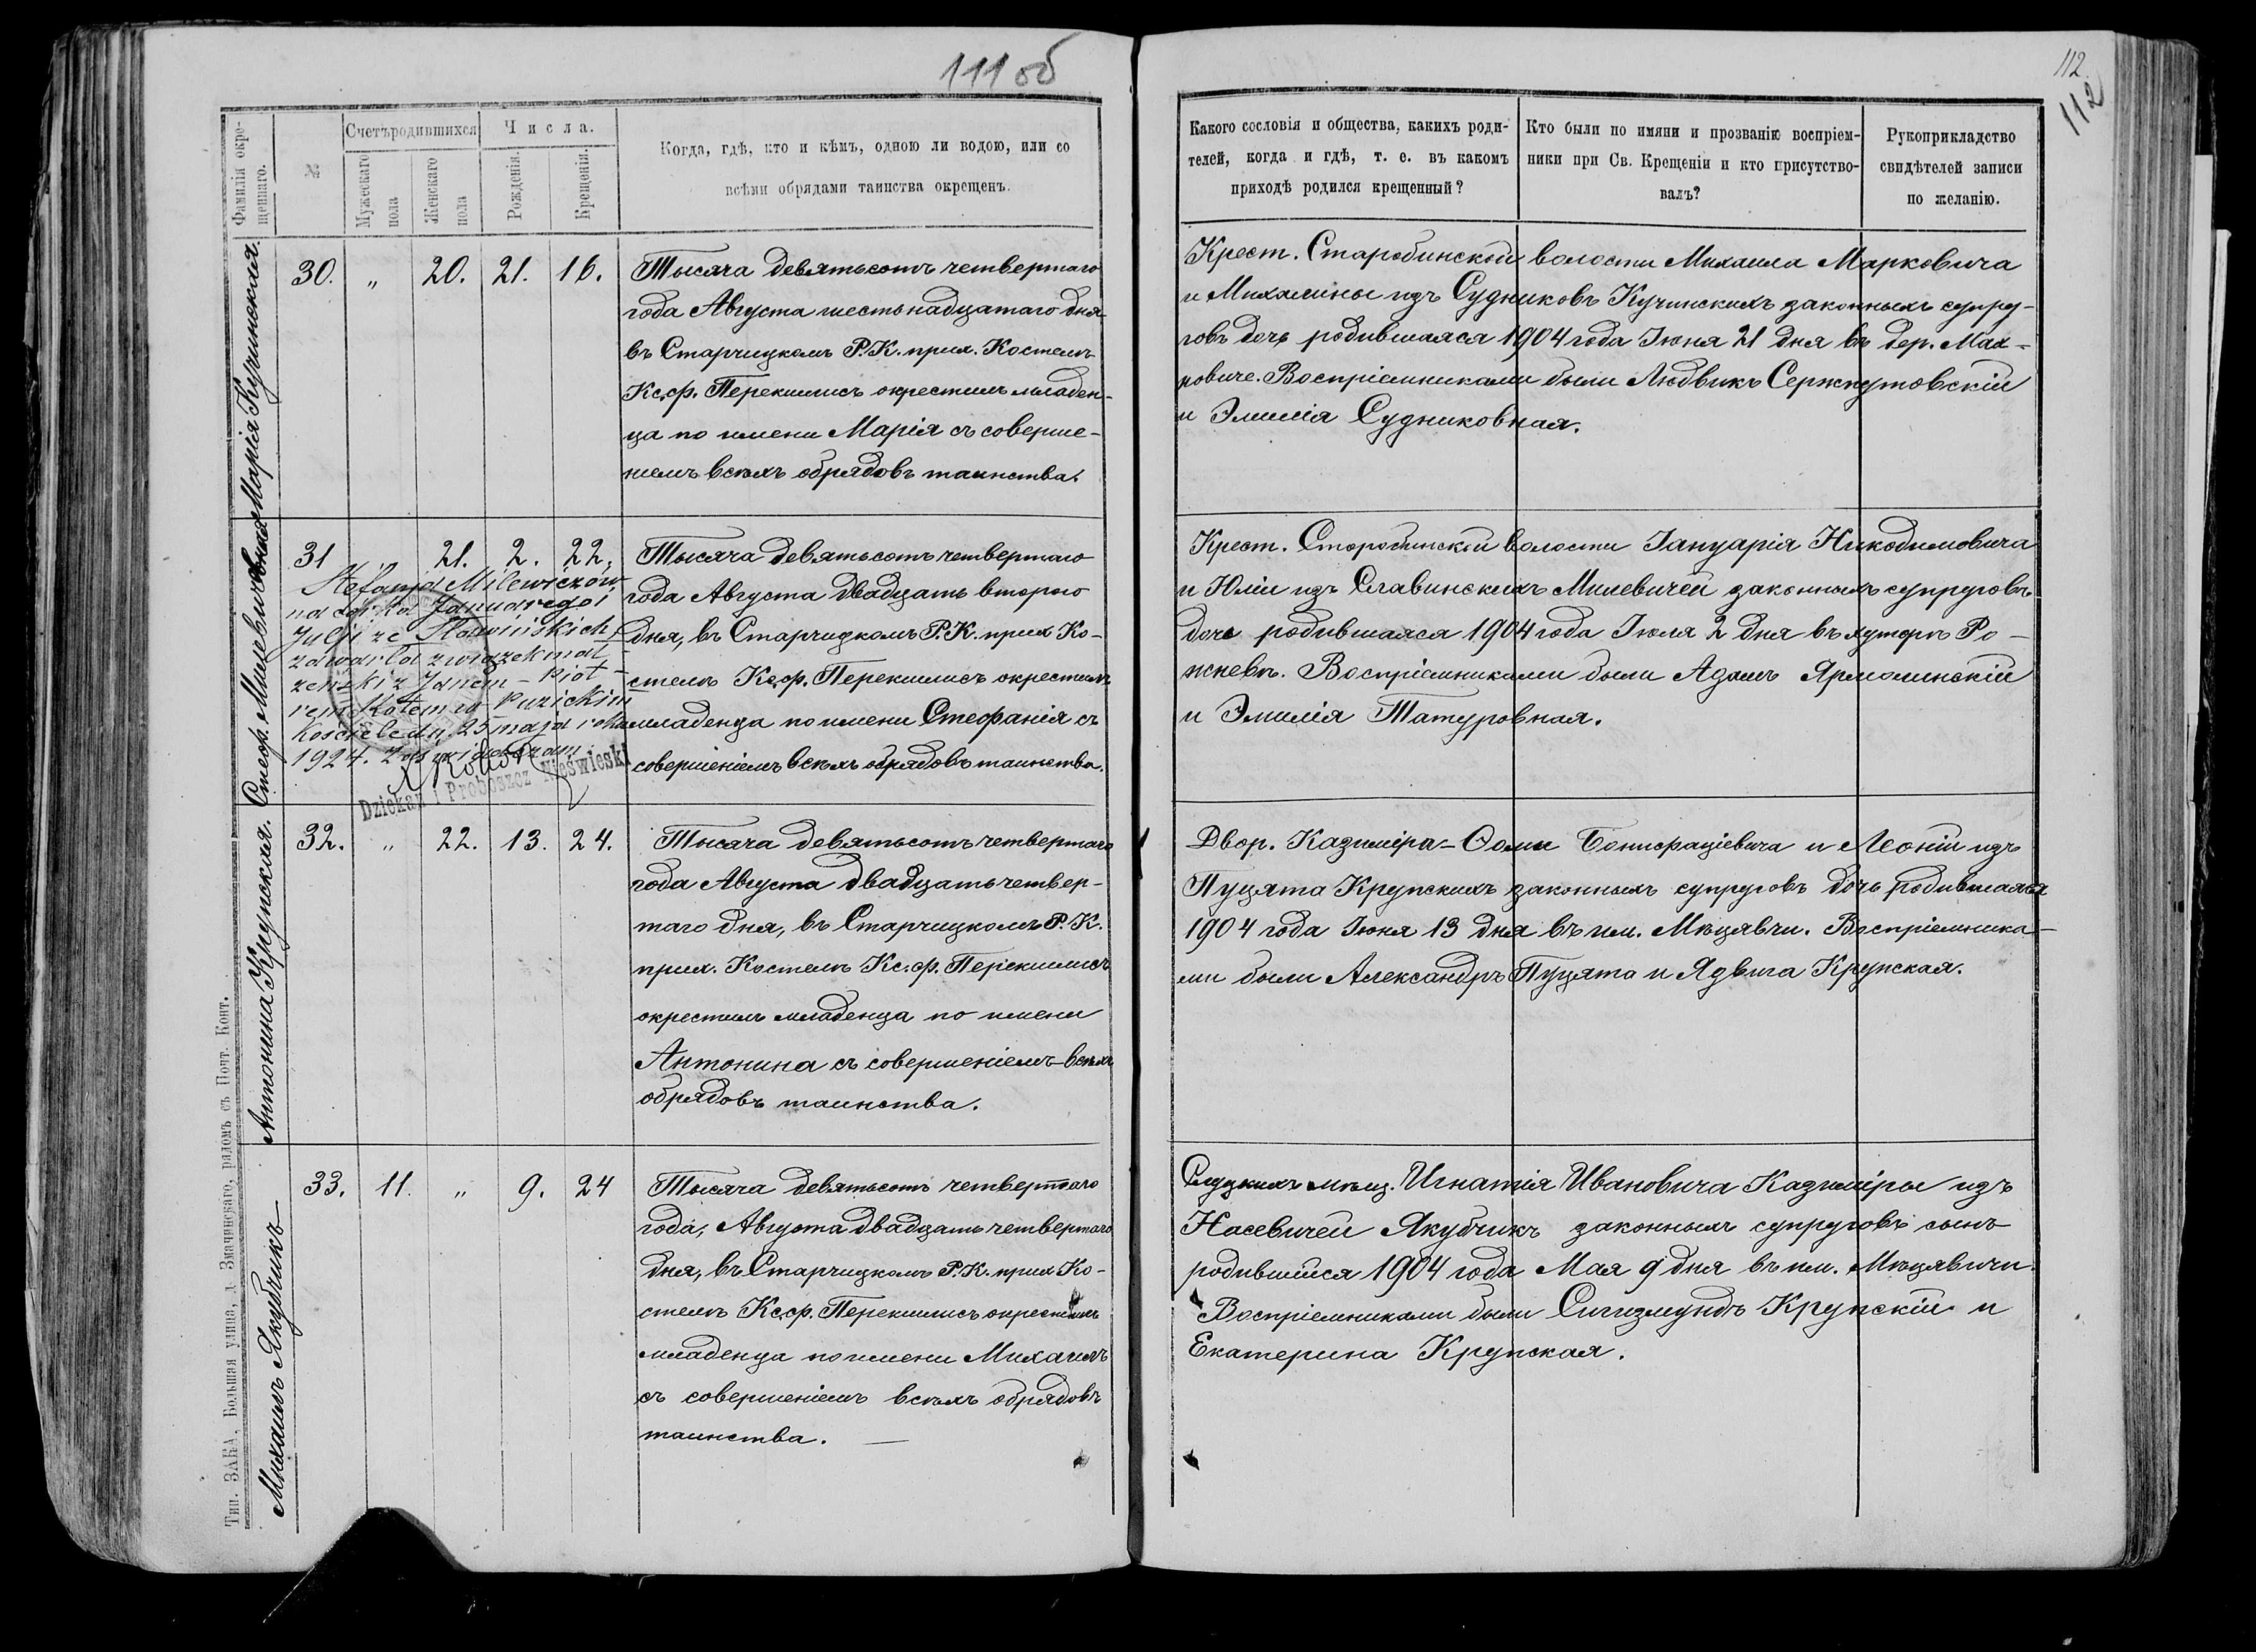 111 об
Фамилія окре-
щеннаго.
№
Счетъ родившихся
Мужескаго
пола
Женскаго
пола
Числа.
Рожденія.
Крещенія.
Когда, гдѣ, кто и кѣмъ, одною ли водою, или со
всѣми обрядами таинства окрещенъ.
Марія Кучинская.
30. „ 20. 21. 16.
Тысяча девятьсотъ четвертаго
года Августа шестьнадцатаго дня
въ Старчицкомъ Р.К. прих. Костелѣ
Кс.ф. Перекшлисъ окрестилъ младен-
ца по имени Марія съ соверше-
ніемъ всѣхъ обрядовъ таинства.
Стеф. Милевичовная
31 „ 21. 2. 22.
Stefanja Milewiczów-
na córka Januarego i
Julji ze Sławińskich,
zawarła związek mał-
żeński z Janem - Piot-
rem Kotem w Puzickim
Kościele dn. 25 maja roku
1924. Zaświadczam
Dziekan i Proboszcz Nieświeski
Тысяча девятьсотъ четвертаго
года Августа двадцать второго
дня, въ Старчицкомъ Р.К. прих Ко-
стелѣ Кс.ф. Перекшлисъ окрестилъ
младенца по имени Стефанія съ
совершеніемъ всѣхъ обрядовъ таинства.
Антонина Крупская.
32. „ 22. 13. 24.
Тысяча девятьсотъ четвертаго
года Августа двадцать четвер-
таго дня, въ Старчицкомъ Р.К.
прих. Костелѣ Кс.ф. Перекшлисъ
окрестилъ младенца по имени
Антонина съ совершеніемъ всѣхъ
обрядовъ таинства.
Михаилъ Якубчикъ
33. 11. „ 9. 24
Тысяча девятьсотъ четвертаго
года, Августа двадцать четвертаго
дня, въ Старчицкомъ Р.К. прих Ко-
стелѣ Кс.ф. Перекшлисъ окрестилъ
младенца по имени Михаилъ
съ совершеніемъ всѣхъ обрядовъ
таинства. —
Тип. ЗАКА, Большая улица, д. Змачинскаго, рядомъ съ Почт. Конт.
112
112
Какого сословія и общества, какихъ роди-
телей, когда и гдѣ, т. е. въ какомъ
приходѣ родился крещенный?
Кто были по имяни и прозванію воспріем-
ники при Св. Крещеніи и кто присутство-
валъ?
Рукоприкладство
свидѣтелей записи
по желанію.
Крест. Старобинской волости Михаила Марковича
и Михалины изъ Судниковъ Кучинскихъ законныхъ супру-
говъ дочь родившаяся 1904 года Іюня 21 дня въ дер. Мах-
новиче. Воспріемниками были Людвикъ Сержпутовскій
и Эмилія Судниковная.
Крест. Старобинской волости Іануарія Никодимовича
и Юліи изъ Славинскихъ Милевичей законныхъ супруговъ
дочь родившаяся 1904 года Іюля 2 дня въ хуторѣ Ро-
жневѣ. Воспріемниками были Адамъ Ярмолинскій
и Эмилія Татуровная.
Двор. Казиміра-Ѳомы Бонифаціевича и Леоніи изъ
Пуцята Крупскихъ законныхъ супруговъ дочь родившаяся
1904 года Іюня 13 дня въ им. Мѣцявчи. Воспріемника-
ми были Александръ Пуцята и Ядвига Крупская.
Слуцкихъ мѣщ. Игнатія Ивановича Казиміры изъ
Насевичей Якубчикъ законныхъ супруговъ сынъ
родившійся 1904 года Мая 9 дня въ им. Мѣцявичи.
Воспріемниками были Сигизмундъ Крупскій и
Екатерина Крупская.